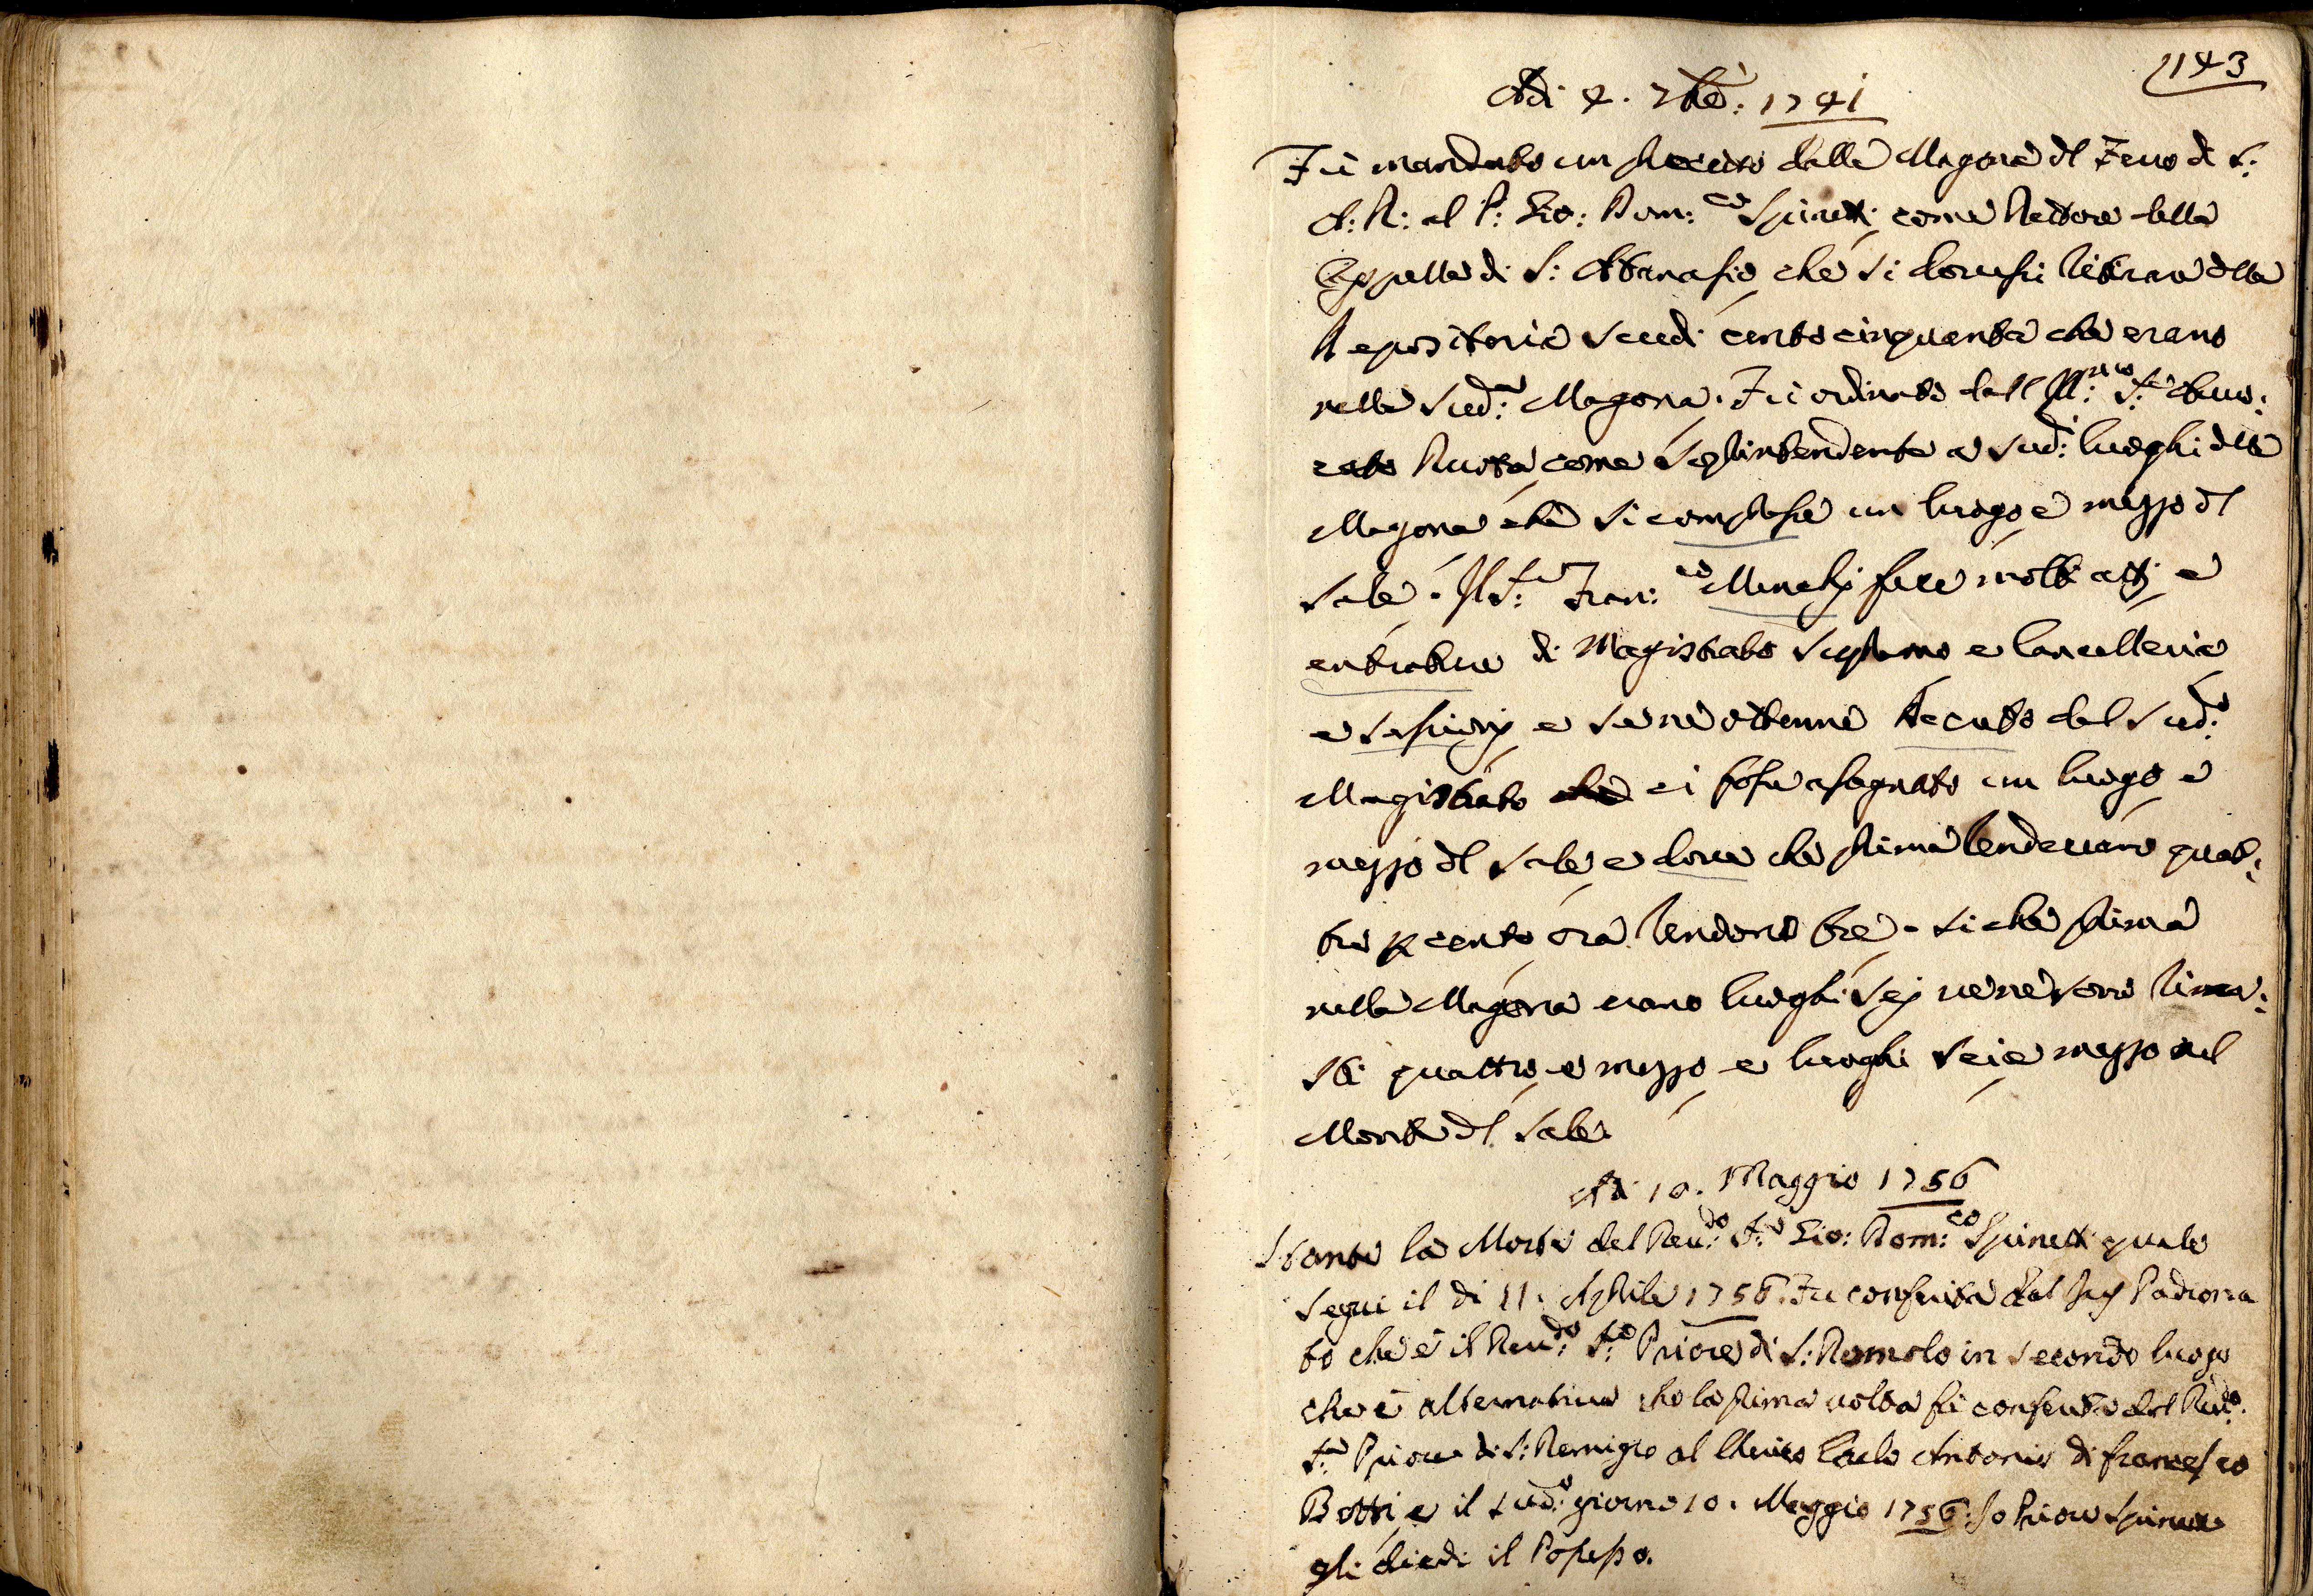 1143
Adi 4. 7bre: 1741
Fù mandato un precetto dalla Magona dl Ferro di S:
A: R: al P: Gio: Dom:co Spinetti come Rettore della
Cappella di S: Atanasio che si dovessi ritirare dlla
Depositeria scudi cento cinquanta che erano
nella sud:a Magona. Fù ordinato dall Ill:mo S:re
come Soprintendente a sud: luoghi dlla
Magona che si comprasse un luogo e mezzo dl
Sale. Il S:re Fran:co fece molti atti e
di Magistrato Supremo e Cancelleria
e e se ne ottenne decreto dal sud:o
Magistrato che ci fosse assegnato un luogo e
mezzo dl Sale e dove che prima rendevano quat:
tro p cento ora rendono tre. si che prima
nella Magona erano luoghi sej ve ne sono rima:
sti quattro e mezzo e luoghi sei e mezzo nel
Monte dl Sale
Adi 10. Maggio 1756
Stante la Morte del Reu:do S:re Gio: Dom:co Spinetti quale
seguì il di 11. Aprile 1756. Fu conferita dal Jus Padrona
to che è il Reu:do S:re Priore di S: Romolo in secondo luogo
che è alternativa che la prima volta fù conferita dal Reu:do
S:re Priore di S: Remigio al Carlo Antonio di Francesco
Botti e il sud:o giorno 10. Maggio 1756. Io Priore
gli diedi il Possesso.